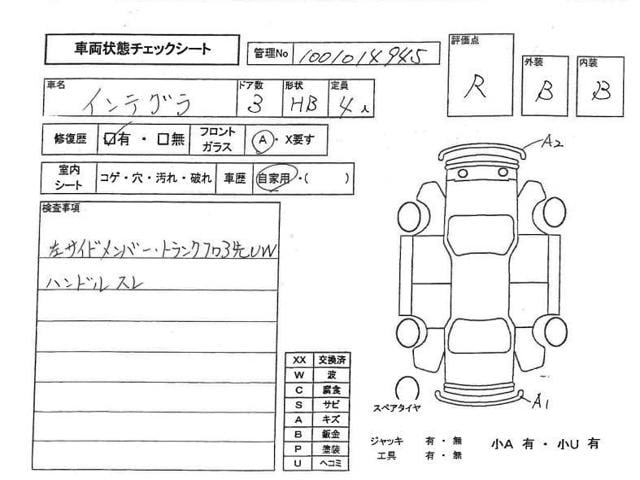 車両状態チェックシート
管理No 1001014945
評価点 R
外装 B
内装 B
車名 インテグラ
ドア数 3
形状 HB
定員 4人
修復歴 ☑有・□無
フロントガラス Ⓐ・X要す
室内シート コゲ・穴・汚れ・破れ
車歴 自家用・( )
検査事項
左サイドメンバー・トランクフロア先UW
ハンドルスレ
A2
A1
XX 交換済
W 波
C 腐食
S サビ
A キズ
B 鈑金
P 塗装
U ヘコミ
スペアタイヤ
ジャッキ 有・無
工具 有・無
小A 有・小U 有